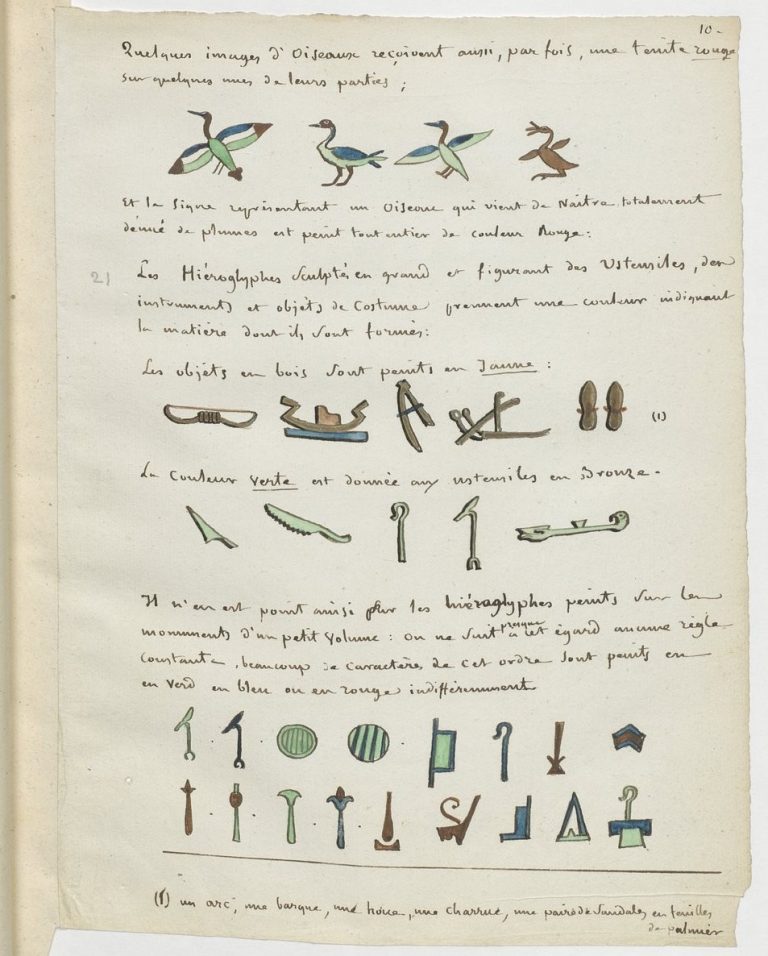 10.
Quelques images d'Oiseaux reçoivent aussi, par fois, une teinte rouge
sur quelques unes de leurs parties ;
Et le signe représentant un Oiseau qui vient de Naître, totalement
dénué de plumes est peint tout entier de couleur Rouge :
21
Les Hiéroglyphes Sculptés en grand et figurant des Ustensiles, des
instruments et objets de Costume prennent une couleur indiquant
la matière dont ils sont formés :
Les objets en bois sont peints en Jaune :
(1)
La Couleur Verte est donnée aux ustensiles en Bronze.
Il n'en est point ainsi pour les hiéroglyphes peints sur les
monuments d'un petit Volume : on ne suit presque à cet égard aucune règle
constante, beaucoup de caractères de cet ordre sont peints en
en verd en bleu ou en rouge indifféremment
(1) un arc, une barque, une houe, une charrue, une paire de Sandales en feuilles
de palmier